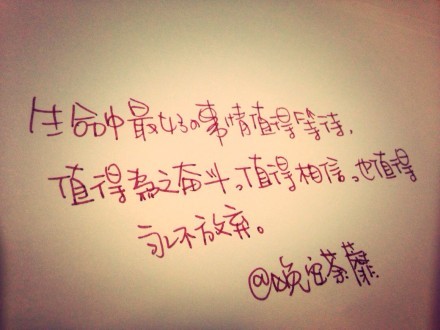 生命中最好的事情值得等待,
值得為之奋斗。值得相信。也值得
永不放弃。
@晚安荼蘼